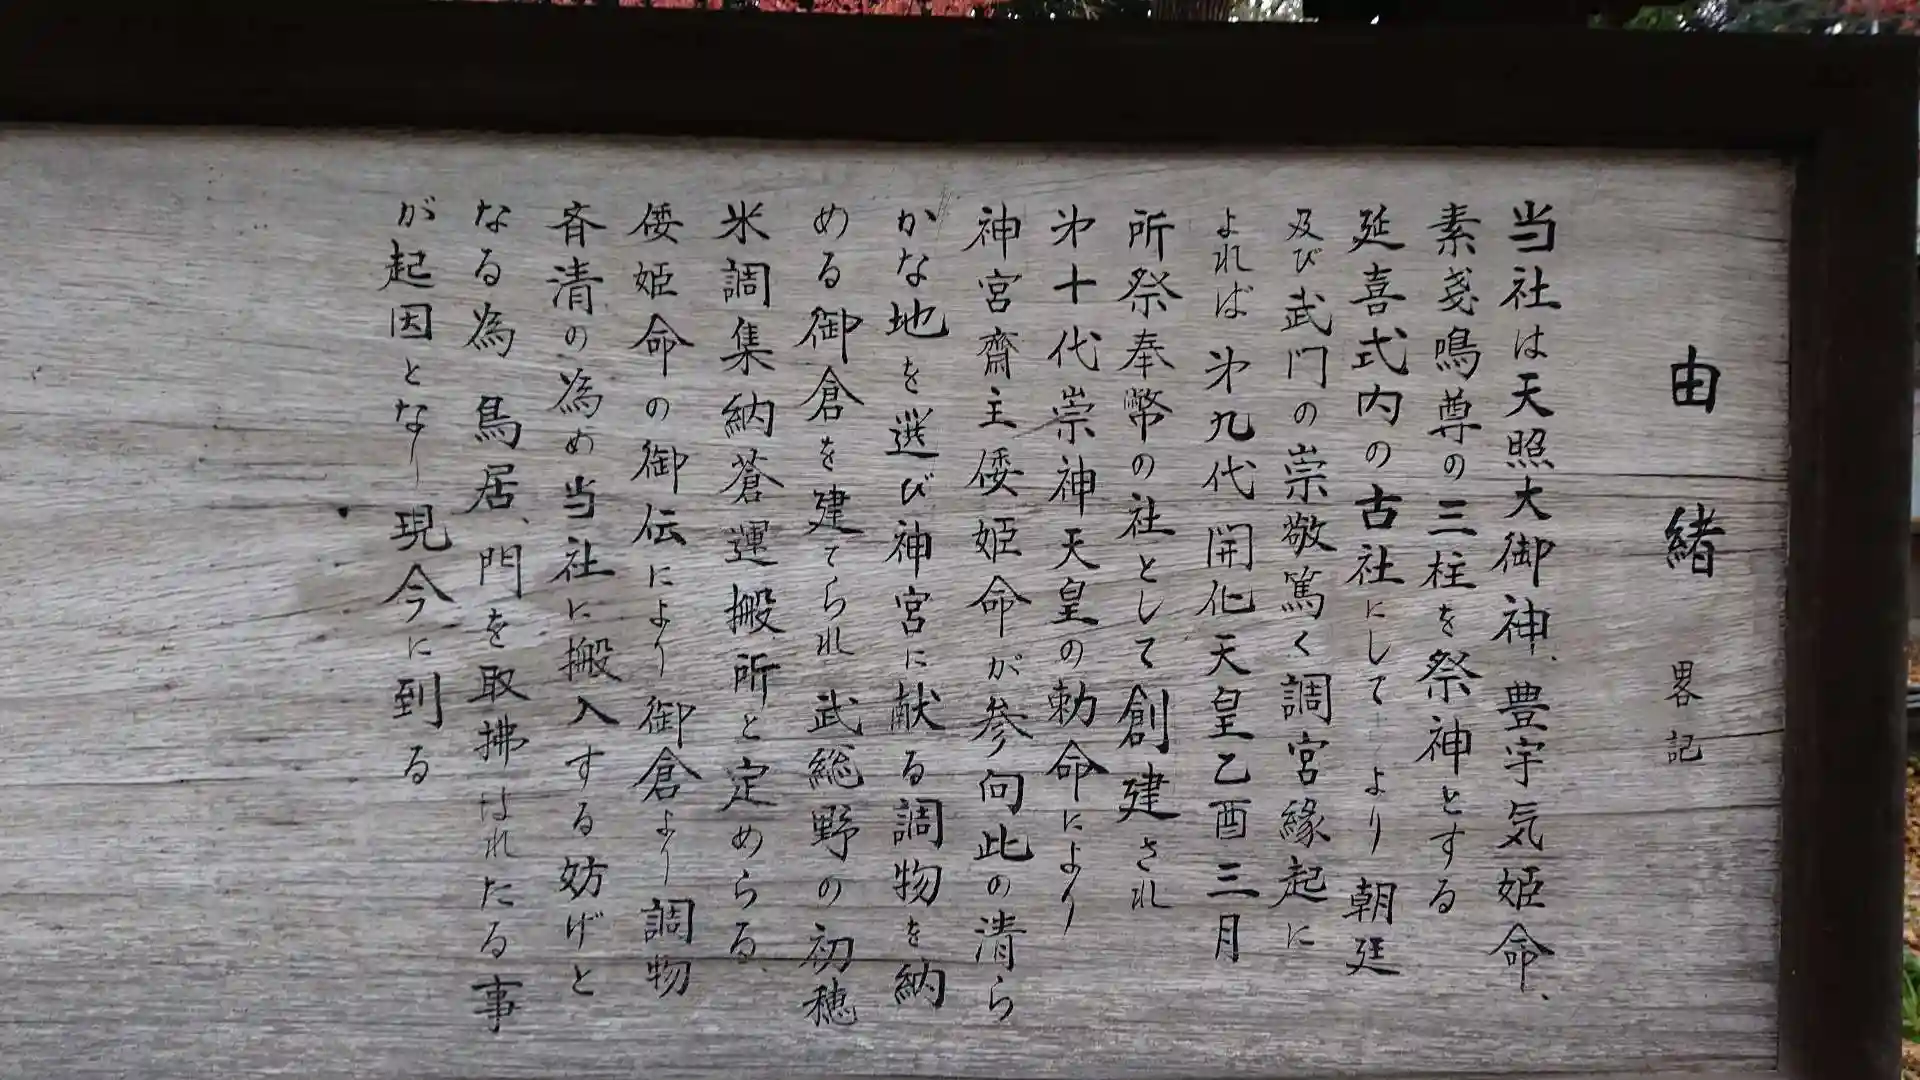 由緒 畧記
当社は天照大御神、豊宇気姫命、
素戔鳴尊の三柱を祭神とする
延喜式内の古社にしてより朝廷
及び武門の崇敬篤く調宮縁起に
よれば㐧九代開化天皇乙酉三月
所祭奉幣の社として創建され
㐧十代崇神天皇の勅命により
神宮齋主倭姫命が参向此の清ら
かな地を選び神宮に献る調物を納
める御倉を建てられ武総野の初穂
米調集納蒼運搬所と定めらる、
倭姫命の御伝により御倉より調物
斉清の為め当社に搬入する妨げと
なる為鳥居、門を取拂はれたる事
が起因となり現今に到る